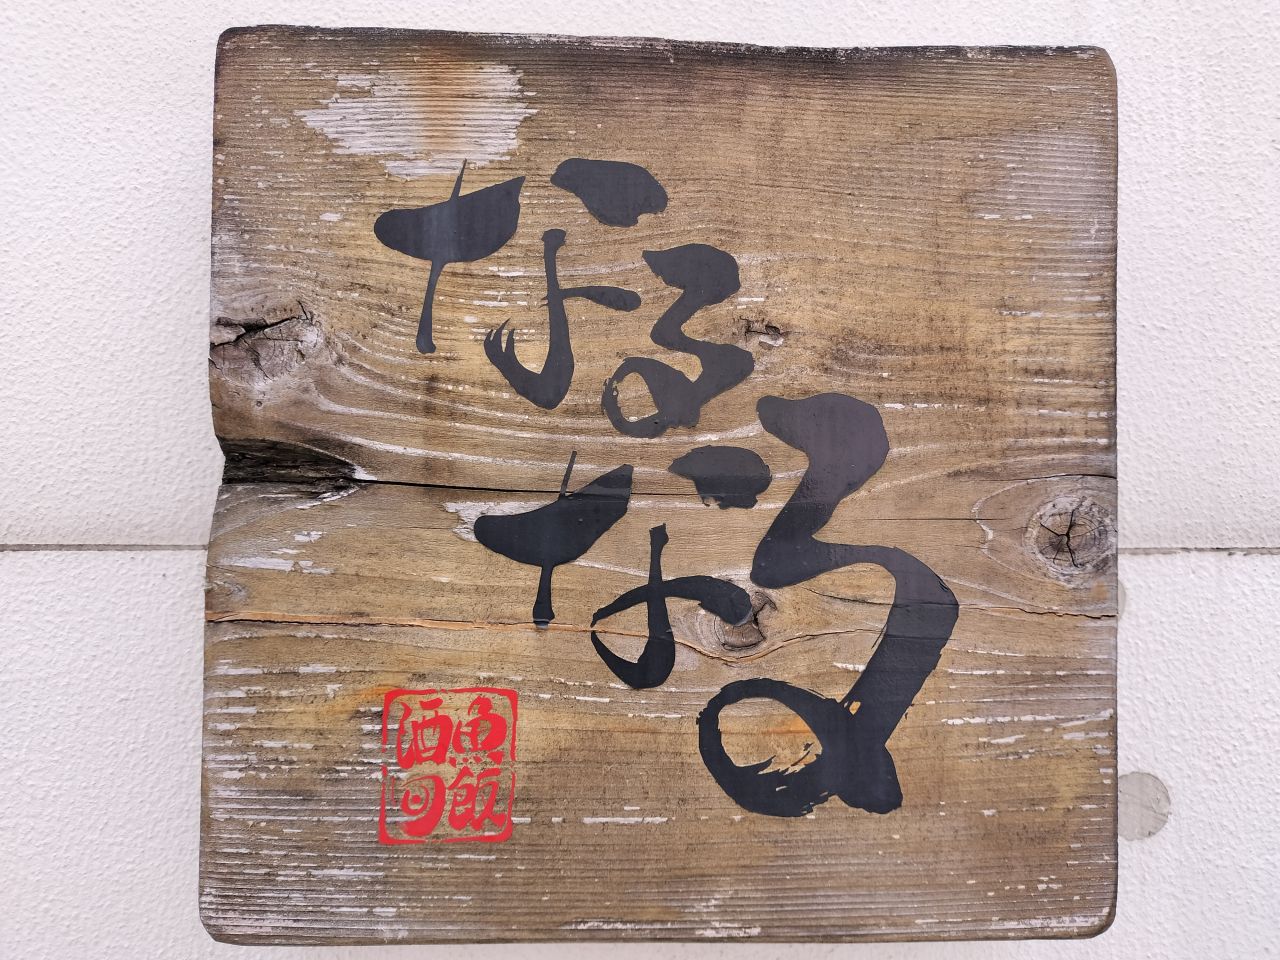 なる
なる
魚飯
酒